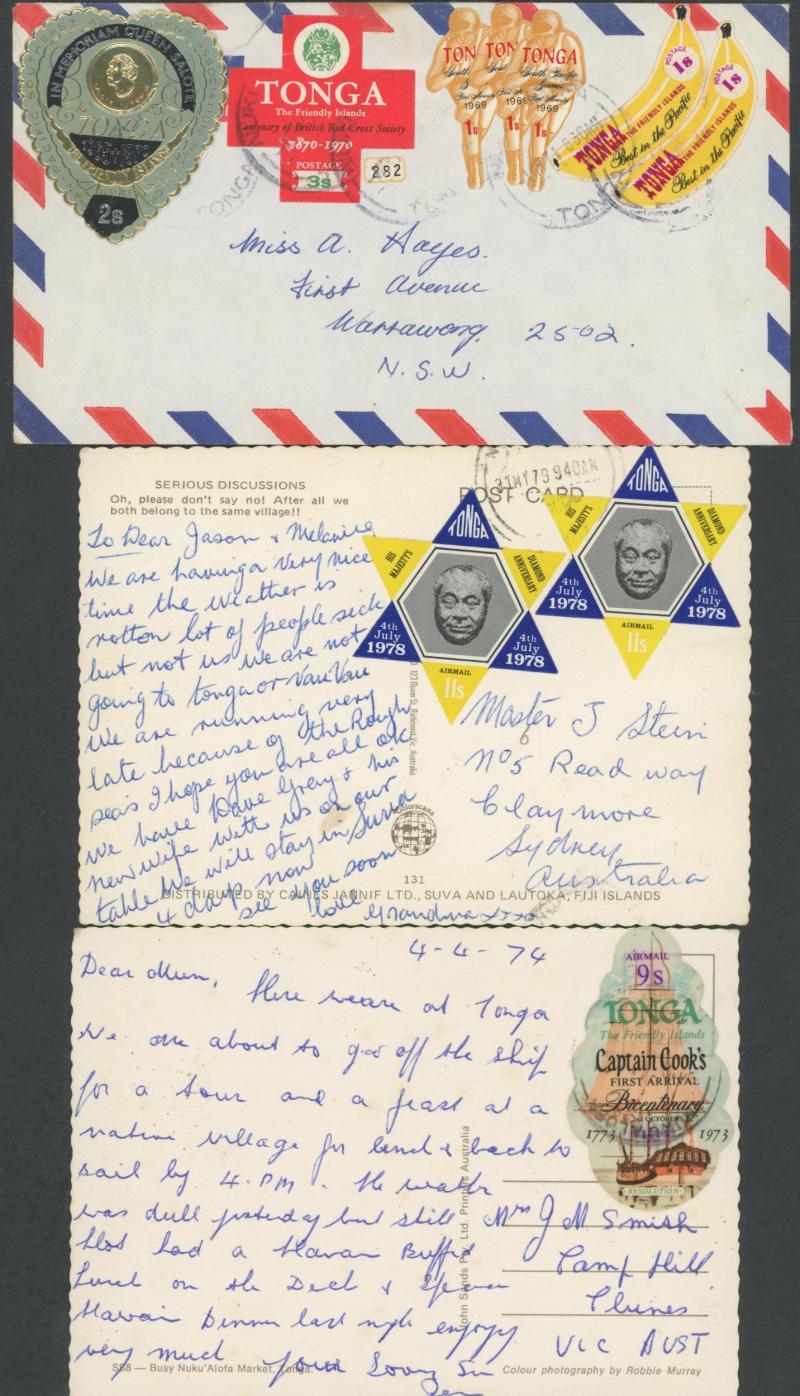 IN MEMORIAM QUEEN SALOTE
TONGA
THE FRIENDLY ISLANDS
2s
TONGA
The Friendly Islands
Centenary of British Red Cross Society
1870-1970
POSTAGE
3s
282
TONGA
South Pacific
Games
1969
1s
1s
1s
POSTAGE
1s
TONGA THE FRIENDLY ISLANDS
Best in the Pacific
POSTAGE
1s
TONGA THE FRIENDLY ISLANDS
Best in the Pacific
TONGA
Miss A. Hayes.
First Avenue
Warrawong. 2502.
N.S.W.
SERIOUS DISCUSSIONS
Oh, please don't say no! After all we
both belong to the same village!!
POST CARD
31MY79 940AM
TONGA
HIS MAJESTY'S
DIAMOND ANNIVERSARY
4th July 1978
4th July 1978
AIRMAIL
11s
TONGA
HIS MAJESTY'S
DIAMOND ANNIVERSARY
4th July 1978
4th July 1978
AIRMAIL
11s
To Dear Jason & Melanie
we are having a very nice
time the weather is
rotton lot of people sick
but not us we are not
going to tonga or Vau Vau
we are running very
late because of the Rough
seas I hope you are all ok
we have Dave Gray & his
new wife with us on our
table we will stay in Suva
4 days now
see you soon
love Grandma xxx
123 Dover St, Richmond, Vic, Australia
Colorscans
131
DISTRIBUTED BY CAINES JANNIF LTD., SUVA AND LAUTOKA, FIJI ISLANDS
Master J Stein
No 5 Read way
Claymore
Sydney
Australia
4-4-74
Dear Mum,
Here we are at Tonga
We are about to get off the ship
for a tour and a feast at a
native village for lunch & back to
sail by 4.PM. The weather
was dull yesterday but still
Hot had a Hawaii Buffet
Lunch on the Deck &
Hawaii Dinner last night enjoy
very much your Loving
AIRMAIL
9s
TONGA
The Friendly Islands
Captain Cook's
FIRST ARRIVAL
Bicentenary
2nd OCTOBER
1773 1973
RESOLUTION
Mrs J M Smith
Camp Hill
Clunes
VIC AUST
John Sands Pty. Ltd. Printers Australia
SS8 — Busy Nuku'Alofa Market, Tonga.
Colour photography by Robbie Murray